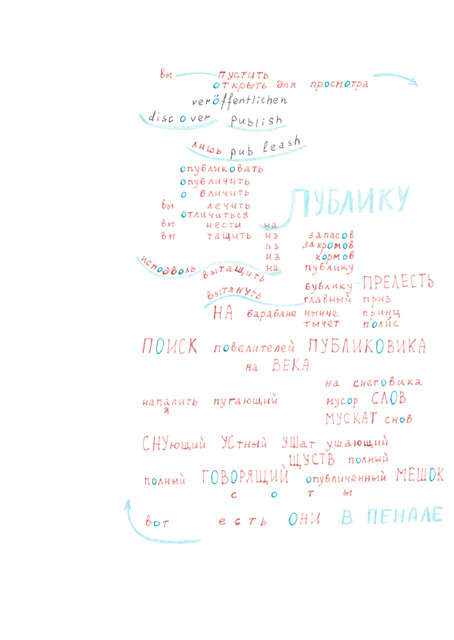 вы пустить
открыть для просмотра
veröffentlichen
discover publish
лишь pub leash
опубликовать
опубличить
о вличить
вы лечить
отличиться
ПУБЛИКУ
вы нести на
вы тащить из запасов
из закромов
из кормов
исподволь вытащить на публику
бублику ПРЕЛЕСТЬ
вытянуть главный приз
НА барабане нынче принц
тычет полис
ПОИСК повелителей ПУБЛИКОВИКА
на ВЕКА
на снеговика
напалить пугающий мусор СЛОВ
я
МУСКАТ снов
СНУющий УСтный УШат ушающий
ЩУСТВ полный
полный ГОВОРЯЩИЙ опубличенный МЕШОК
с о т ы
вот есть ОНИ В ПЕНАЛЕ